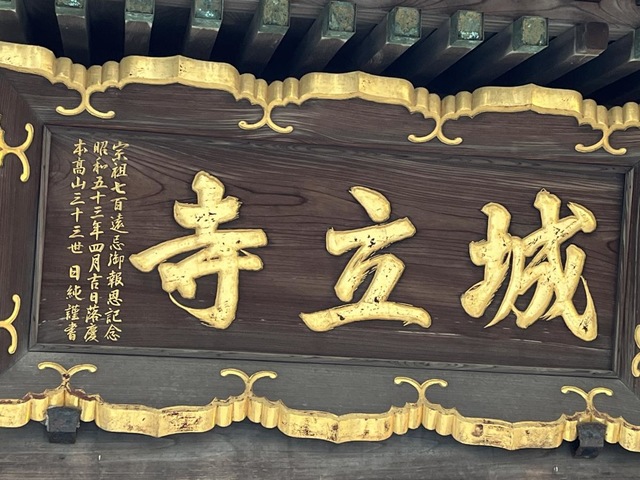 城立寺
宗祖七百遠忌御報恩記念
昭和五十三年四月吉日落慶
本高山三十三世 日純謹書